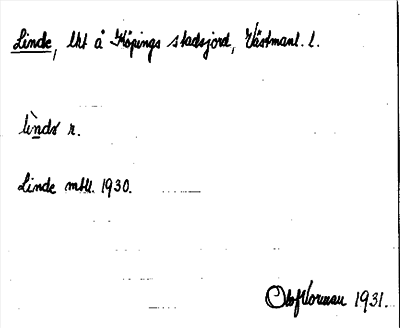 Linde, lht å Köpings stadsjord, Västmanl. l.
lìndə r.
Linde mtll. 1930.
Olof Norman 1931.